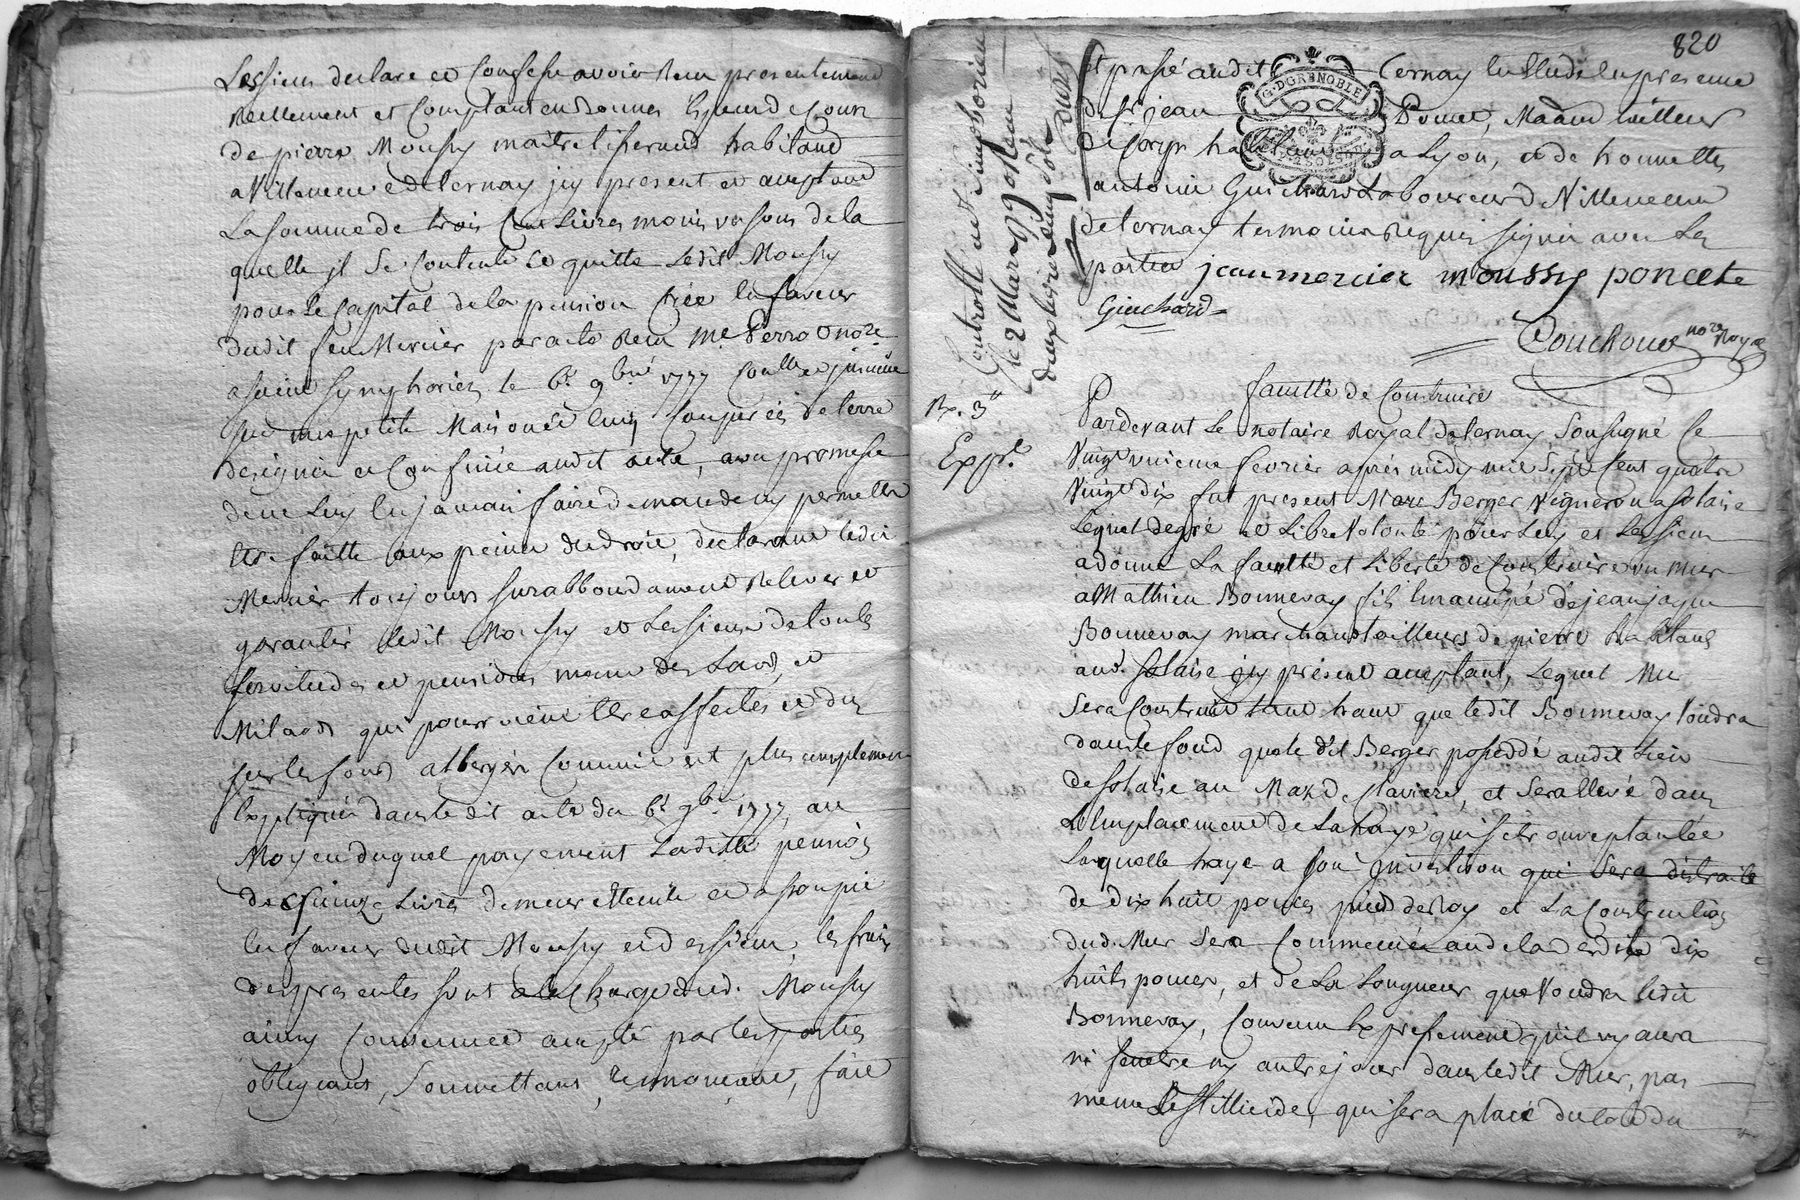 Lessieur declare et Confesse avoir Reçu presentement
Reellement et Comptant en Bonnes Especes de Cours
de pierre Moussy maitre tisserand habitand
a Villeneuve de ternay icy present et aceptand
La somme de trois Cens Livres moins un sous de la
quelle il Se Contente et quitte Ledit Moussy
pour le Capital de la pension Créé en faveur
dudit feu Mercier par acte Reçu Me Perra nore
a saint Symphorien le 6e 9bre 1777
sur une petite Maison et
designée et Confinée audit acte, avec promesse
de ne Luy en jamais faire demande ny permettre
etre faitte aux peines de droit, declarant ledit
Mercier toujours surabbondament Relever et
garantir ledit Moussy et Lessiens de touts
servitudes et pensions meme des Laods et
Milaods qui pourroient etre affectés et dus
sur les fonds albergés Comme est plus amplement
Expliqué dans ledit acte du 6e 9bre 1777, au
Moyen duquel payement Laditte pension
de quinze Livres demeure eteinte et assoupie
en faveur dudit Moussy et des siens, les frais
des presentes sont a la Charge dud. Moussy
ainsy Convenu et acepté par les parties
obligeant, Soumettant, Renonceant, fait
820
et passé audit Ternay en Etude en presence
de sr jean Pomet, Mard tailleur
de Corps habitant a Lyon, et de honnette
antoine Guichard Laboureur de Villeneuve
de ternay temoins Requis signés avec Les
parties jean mercier moussy poncete
Guichard
Couchoud nore Royal
G.D GRENOBLE
Controllé a St Simphorien
le 2 Mars 1790 Reçu
deux livres cinq sols
Rx. 3"
Expé.
faculté de Construire
Pardevant Le notaire Royal de ternay Soussigné le
Vingt unieme fevrier après midy mil Sept Cent quatre
Vingt Dix fut present Marc Berger Vigneron a Solaise
Lequel de gré et Libre Volonté pour Luy et Lessiens
a donné La faculté et Liberté de Construire un Mur
a Mathieu Bonnevay fils Emancipé de jean jaques
Bonnevay marchand tailleurs de pierre habitant
aud. Solaise icy présent aceptant, Lequel Mur
Sera Construit tant haut que ledit Bonnevay Voudra
dans le fond que le dit Berger possedé audit Lieu
de Solaise au Maz de Clavieres, et Sera Elevé dans
L'Emplacement de La haye qui se trouve plantée
Laquelle haye a son qui Sera distraite
de Dix huit pouces pied de Roy et La Construction
dud. Mur Sera Commencée au dela desdits dix
huits pouces, et de La Longueur que Voudra ledit
Bonnevay, Convenu Expressement qu'il ny aura
ni fenetre ny autre jour dans ledit Mur, pas
meme Le Stillicide, qui sera placé du Coté du